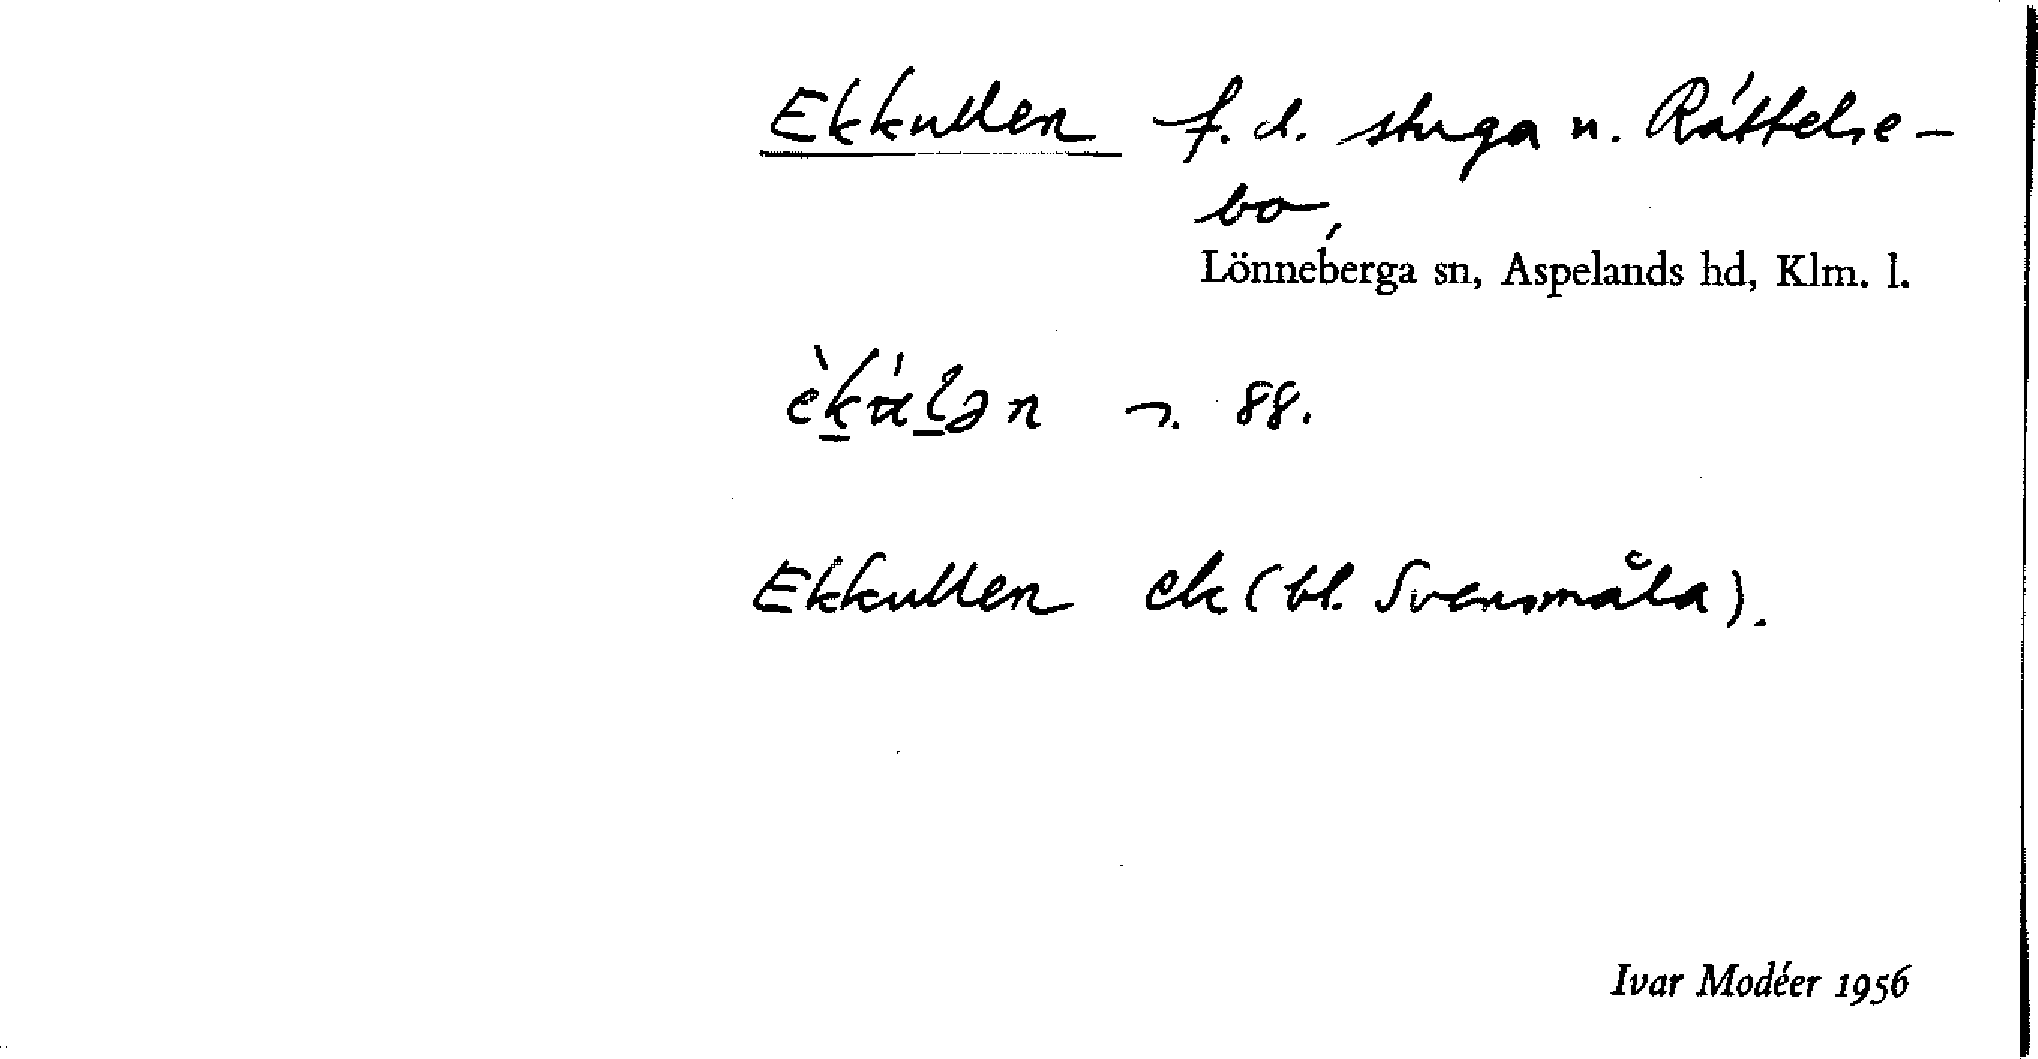 Ekkullen f. d. stuga n. Råttelse-
bo,
Lönneberga sn, Aspelands hd, Klm. l.
88.
Ekkullen ek (bl. Svensmåla).
Ivar Modéer 1956